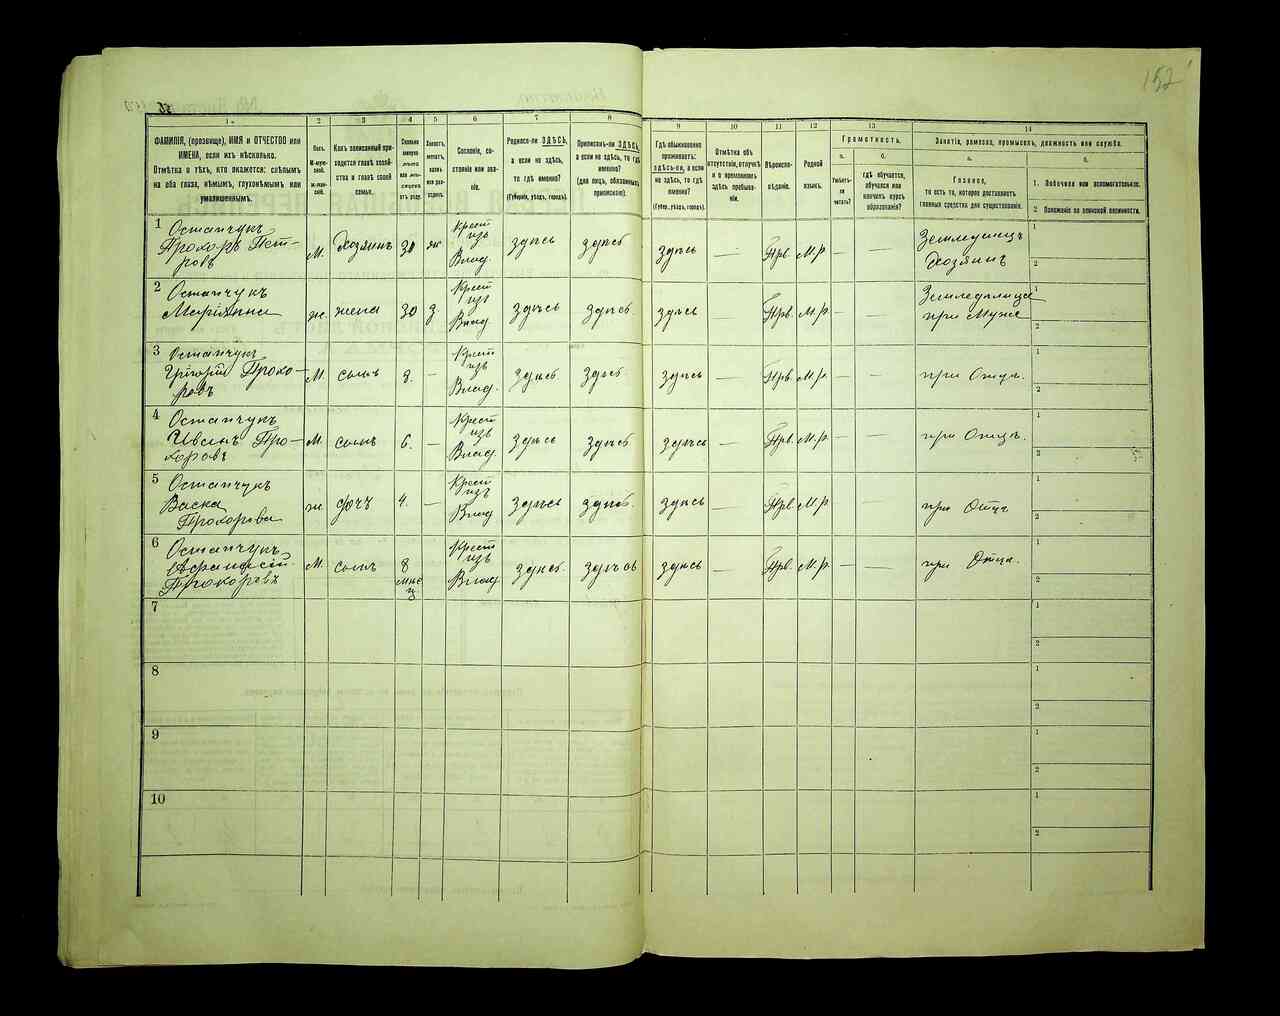 152
1.
2
3
4
5
6
7
8
9
10
11
12
13
14
ФАМИЛІЯ, (прозвище), ИМЯ и ОТЧЕСТВО или
ИМЕНА, если ихъ нѣсколько.
Отмѣтка о тѣхъ, кто окажется: слѣпымъ
на оба глаза, нѣмымъ, глухонѣмымъ или
умалишеннымъ.
Полъ.
М-муж-
ской.
Ж-жен-
скій.
Какъ записанный при-
ходится главѣ хозяй-
ства и главѣ своей
семьи.
Сколько
минуло
лѣтъ
или мѣ-
сяцевъ
отъ роду.
Холостъ,
женатъ,
вдовъ
или раз-
веденъ.
Сословіе, со-
стояніе или зва-
ніе.
Родился-ли ЗДѢСЬ,
а если не здѣсь,
то гдѣ именно?
(Губернія, уѣздъ, городъ).
Приписанъ-ли ЗДѢСЬ,
а если не здѣсь, то гдѣ
именно?
(для лицъ, обязанныхъ
припискою).
Гдѣ обыкновенно
проживаетъ:
здѣсь-ли, а если
не здѣсь, то гдѣ
именно?
(Губер., уѣздъ, городъ).
Отмѣтка объ
отсутствіи, отлучкѣ
и о временномъ
здѣсь пребыва-
ніи.
Вѣроиспо-
вѣданіе.
Родной
языкъ.
Грамотность.
а.
Умѣетъ-
ли
читать?
б.
гдѣ обучается,
обучался или
кончилъ курсъ
образованія?
Занятіе, ремесло, промыселъ, должность или служба.
а.
Главное,
то есть то, которое доставляетъ
главныя средства для существованія.
б.
1. Побочное или вспомогательное.
2. Положеніе по воинской повинности.
1 Остапчукъ
Прохоръ Пет-
ровъ
М. Хозяинъ 31 ж Крест изъ Влад. здѣсь здѣсь здѣсь — Прв. М.р — — Земледѣлецъ Хозяинъ 1 2
2 Остапчукъ
Маріянна
ж. жена 30 з. Крест изъ Влад. здѣсь здѣсь здѣсь — Прв М.р. — — Земледѣлица при Мужѣ 1 2
3 Остапчукъ
Григорій Прохо-
ровъ
М. сынъ 8. — Крест изъ Влад. здѣсь здѣсь здѣсь — Прв. М.р. — — при Отцѣ. 1 2
4 Остапчукъ
Иванъ Про-
хоровъ
М. сынъ 6. — Крест изъ Влад. здѣсь здѣсь здѣсь — Прв. М.р. — — при Отцѣ. 1 2
5 Остапчукъ
Васка
Прохорова
ж. дочъ 4. — Крест изъ Влад здѣсь здѣсь. здѣсь — Прв. М.р. — — при Отцѣ 1 2
6 Остапчукъ
Афанасій
Прохоровъ
М. сынъ 8 мпс ц Крест изъ Влад здѣсь здѣсь здѣсь — Прв. М.р. — — при Отцѣ. 1 2
7 1 2
8 1 2
9 1 2
10 1 2